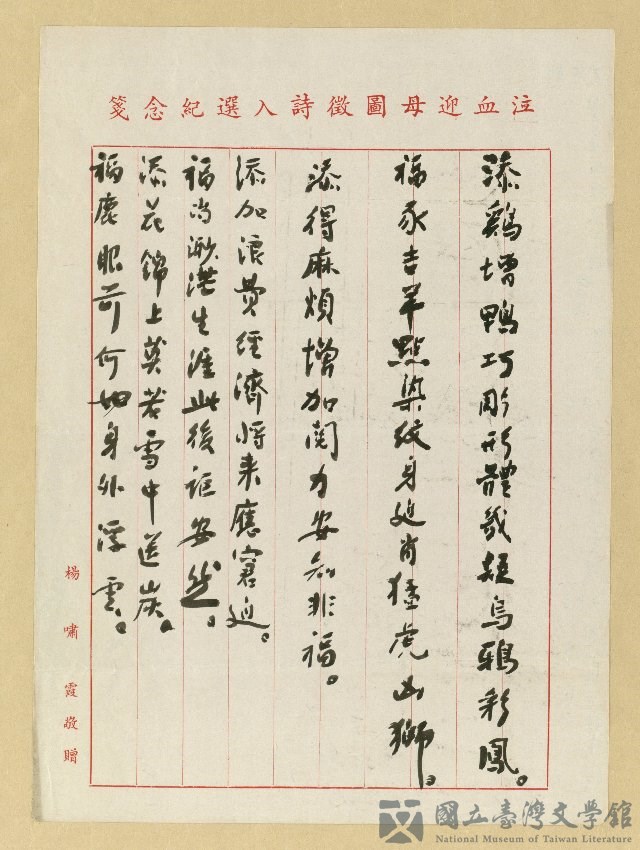 泣血迎母圖徵詩入選紀念箋
添鷄增鴨巧彫形體幾疑烏鴉彩鳳。
福豕吉羊點染紋身迫肖猛虎凶獅。
添得麻煩增加鬪力安知非福。
添加浪費經濟將来應窘迫。
福尚渺茫生涯此後詎安然。
添花錦上莫若雪中送炭。
福鹿眼前何如身外浮雲。
楊嘯霞敬贈
國立臺灣文學館
National Museum of Taiwan Literature